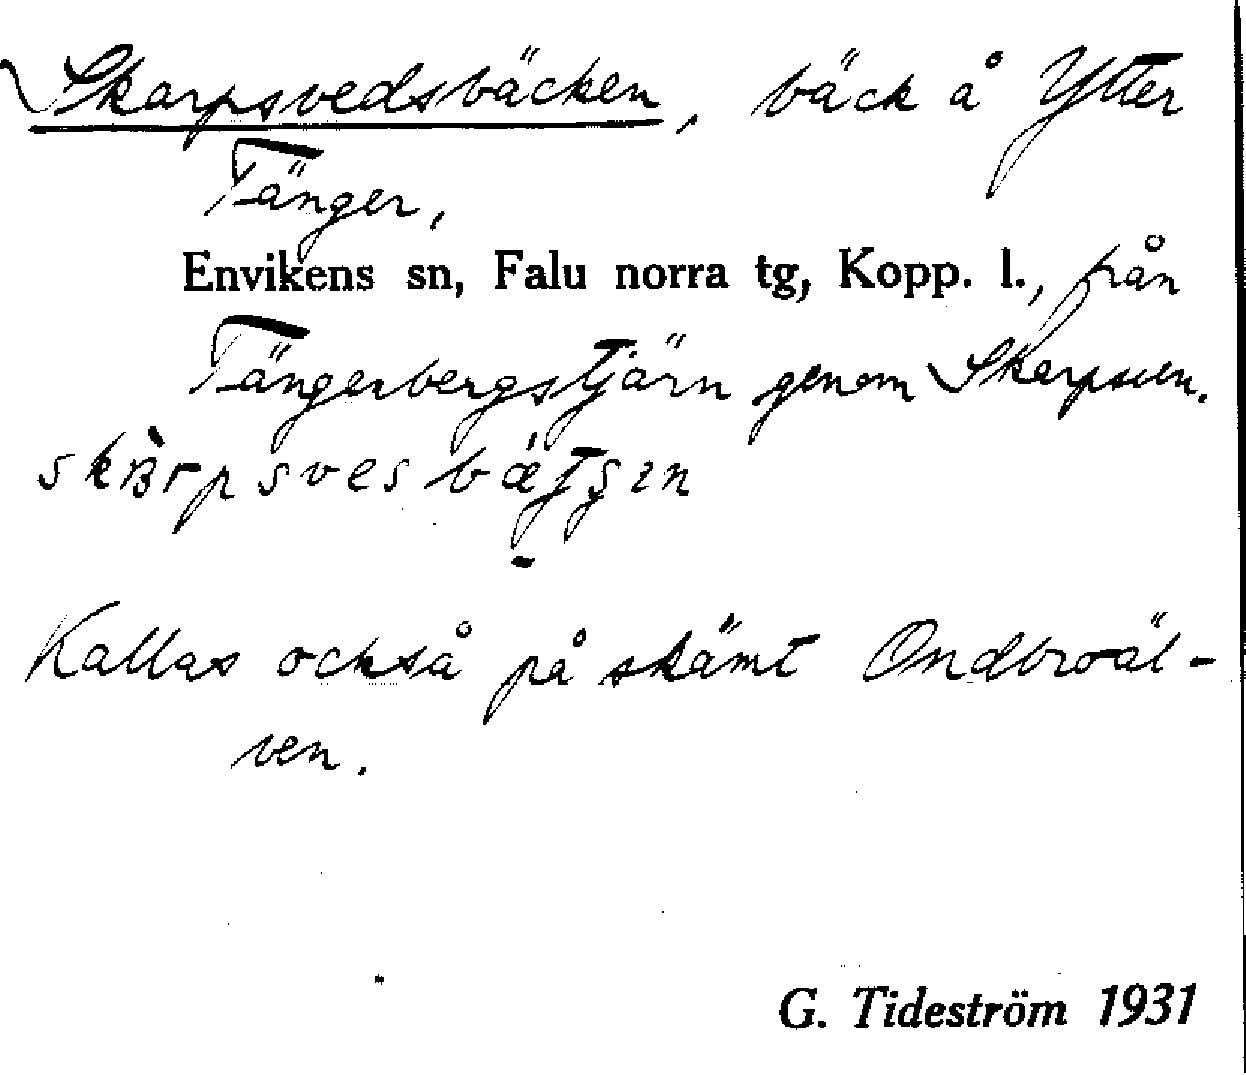 Skarpsvedsbäcken, bäck å Ytter
Tänger,
Envikens sn, Falu norra tg, Kopp. l., från
Tängerbergstjärn genom
Kallas också på skämt Ondbroäl-
ven.
G. Tideström 1931